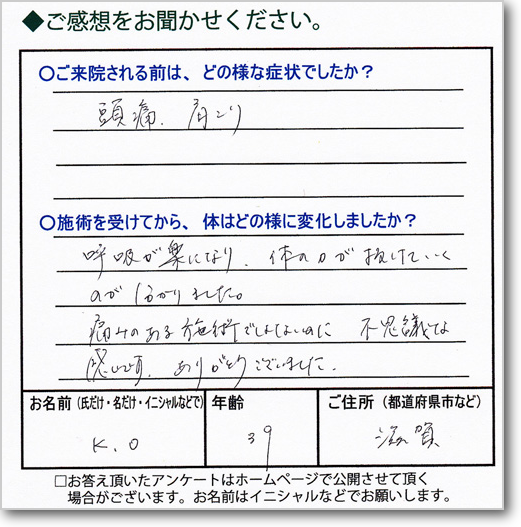 ◆ご感想をお聞かせください。
〇ご来院される前は、どの様な症状でしたか？
頭痛、肩こり
〇施術を受けてから、体はどの様に変化しましたか？
呼吸が楽になり、体の力が抜けていく
のが分かりました。
痛みのある施術でもないのに 不思議な
感じです。ありがとうございました。
お名前（氏だけ・名だけ・イニシャルなどで） 年齢 ご住所（都道府県市など）
K.O 39 滋賀
□お答え頂いたアンケートはホームページで公開させて頂く
場合がございます。お名前はイニシャルなどでお願いします。